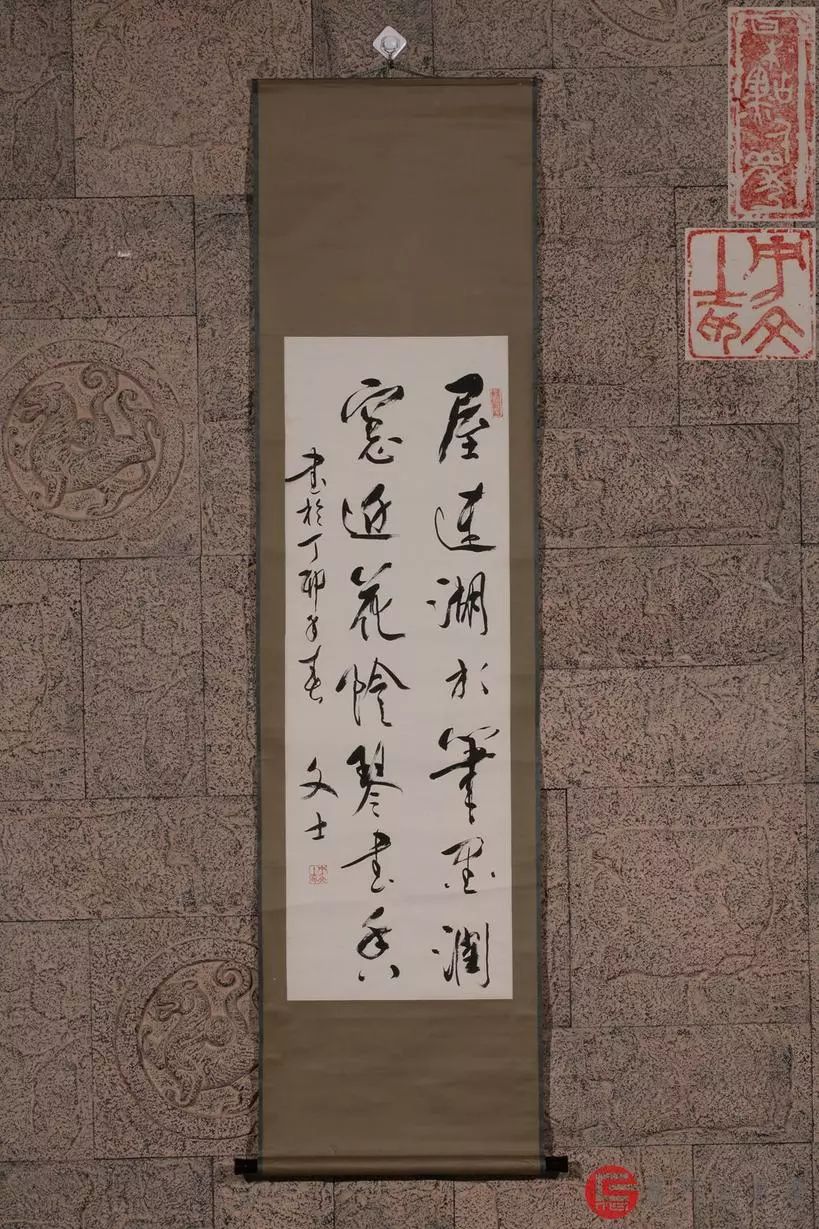 屋連湖水筆墨潤
窓近花陰琴書香
書於丁卯年春 文士